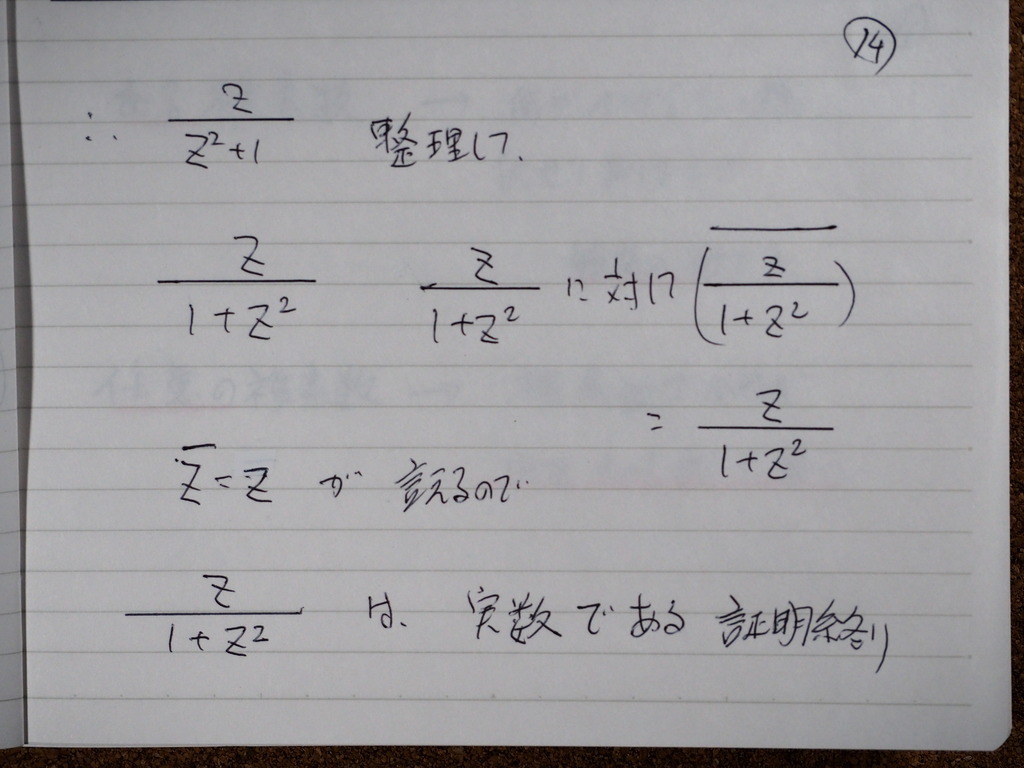 ⑭
∴ z/(z²+1) 整理して、
z/(1+z²) z/(1+z²) に対して \overline{(z/(1+z²))}
= z/(1+z²)
z̅ = z が 言えるので
z/(1+z²) は、実数である 証明終り